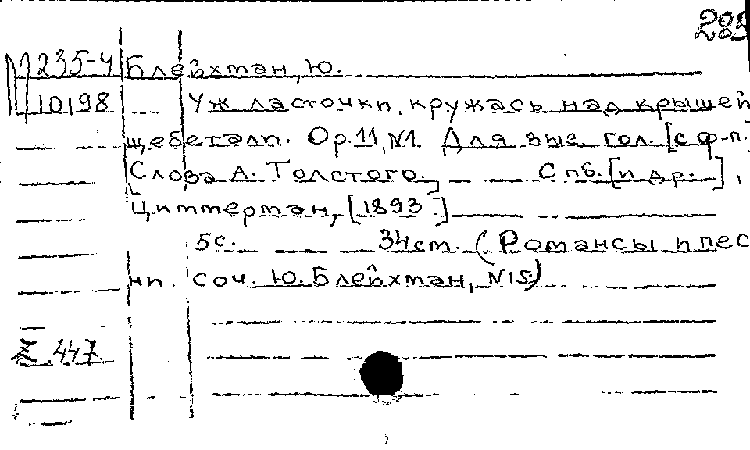 283
235-4 Блейхман, Ю.
10198 Уж ласточки, кружась над крышей
щебетали. Op.11, N1. Для выс. гол. [с ф-п.
Слова А. Толстого. Спб. [и др.],
Циммерман, [1893.]
5с. 34см. (Романсы и пес
ни. соч. Ю. Блейхман, N15)
Z.447